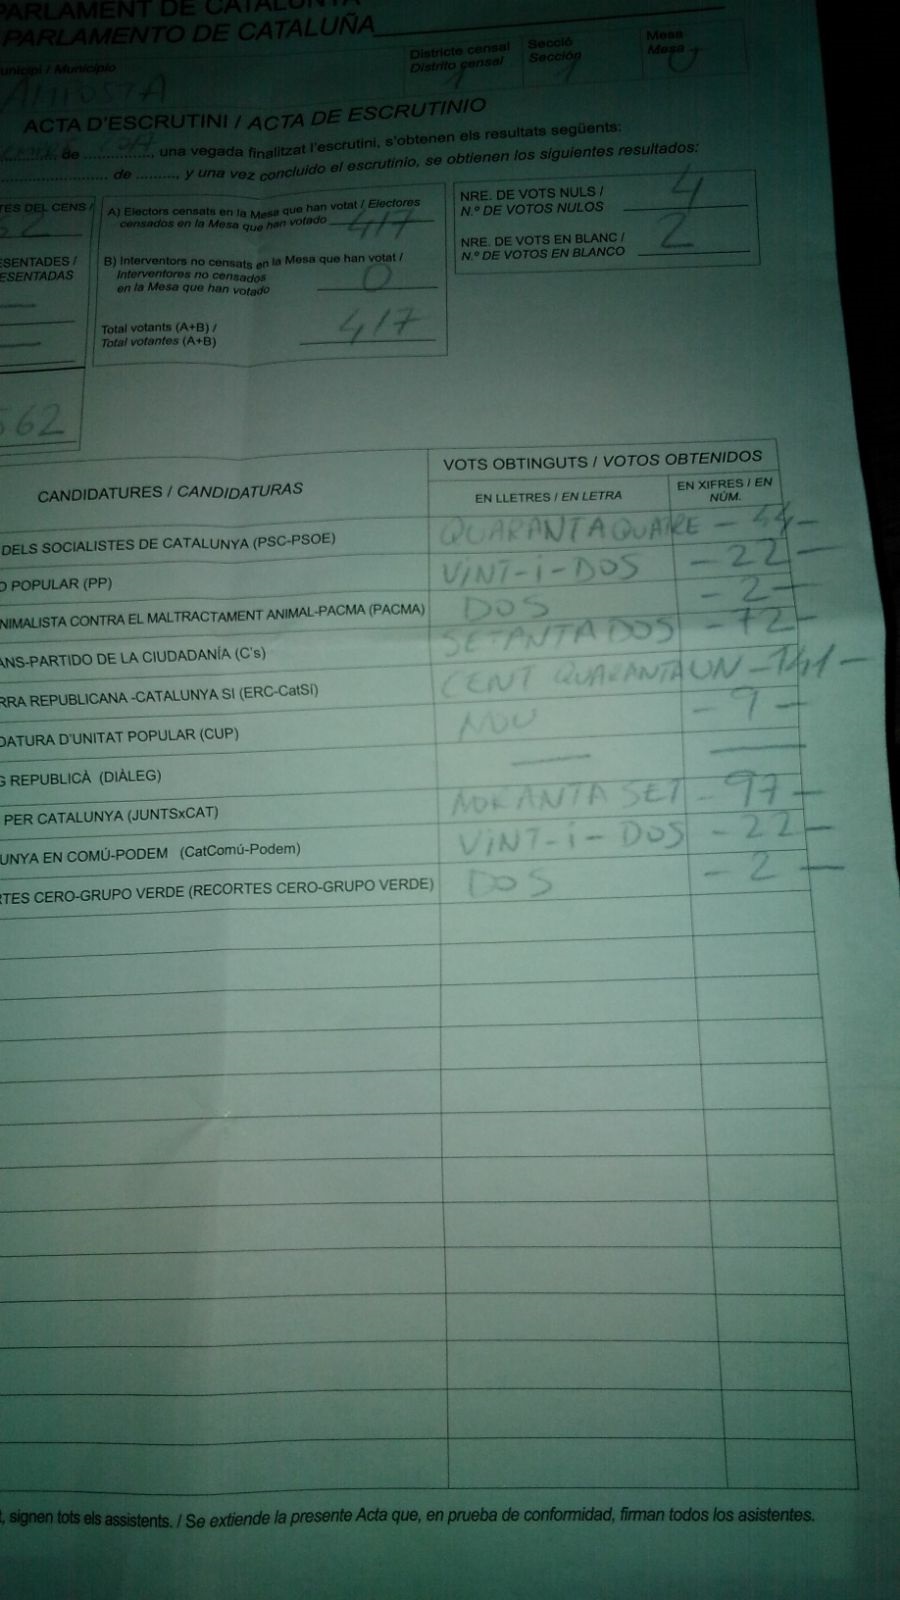 PARLAMENT DE CATALUNYA
PARLAMENTO DE CATALUÑA
unicipi / Municipio
AMPOSTA
Districte censal
Distrito censal
1
Secció
Sección
1
Mesa
Mesa
U
ACTA D'ESCRUTINI / ACTA DE ESCRUTINIO
de ..............., una vegada finalitzat l'escrutini, s'obtenen els resultats següents:
de ........., y una vez concluido el escrutinio, se obtienen los siguientes resultados:
TES DEL CENS /
62
ESENTADES /
ESENTADAS
562
A) Electors censats en la Mesa que han votat / Electores
censados en la Mesa que han votado 417
B) Interventors no censats en la Mesa que han votat /
Interventores no censados
en la Mesa que han votado 0
Total votants (A+B) /
Total votantes (A+B) 417
NRE. DE VOTS NULS /
N.º DE VOTOS NULOS 4
NRE. DE VOTS EN BLANC /
N.º DE VOTOS EN BLANCO 2
CANDIDATURES / CANDIDATURAS
VOTS OBTINGUTS / VOTOS OBTENIDOS
EN LLETRES / EN LETRA
EN XIFRES / EN
NÚM.
DELS SOCIALISTES DE CATALUNYA (PSC-PSOE) QUARANTA QUATRE - 44 -
O POPULAR (PP) VINT-I-DOS - 22 -
NIMALISTA CONTRA EL MALTRACTAMENT ANIMAL-PACMA (PACMA) DOS - 2 -
ANS-PARTIDO DE LA CIUDADANÍA (C's) SETANTA DOS - 72 -
RRA REPUBLICANA -CATALUNYA SI (ERC-CatSí) CENT QUARANTA UN - 141 -
DATURA D'UNITAT POPULAR (CUP) NOU - 9 -
G REPUBLICÀ (DIÀLEG) — —
PER CATALUNYA (JUNTSxCAT) NORANTA SET - 97 -
UNYA EN COMÚ-PODEM (CatComú-Podem) VINT-I-DOS - 22 -
RTES CERO-GRUPO VERDE (RECORTES CERO-GRUPO VERDE) DOS - 2 -
, signen tots els assistents. / Se extiende la presente Acta que, en prueba de conformidad, firman todos los asistentes.